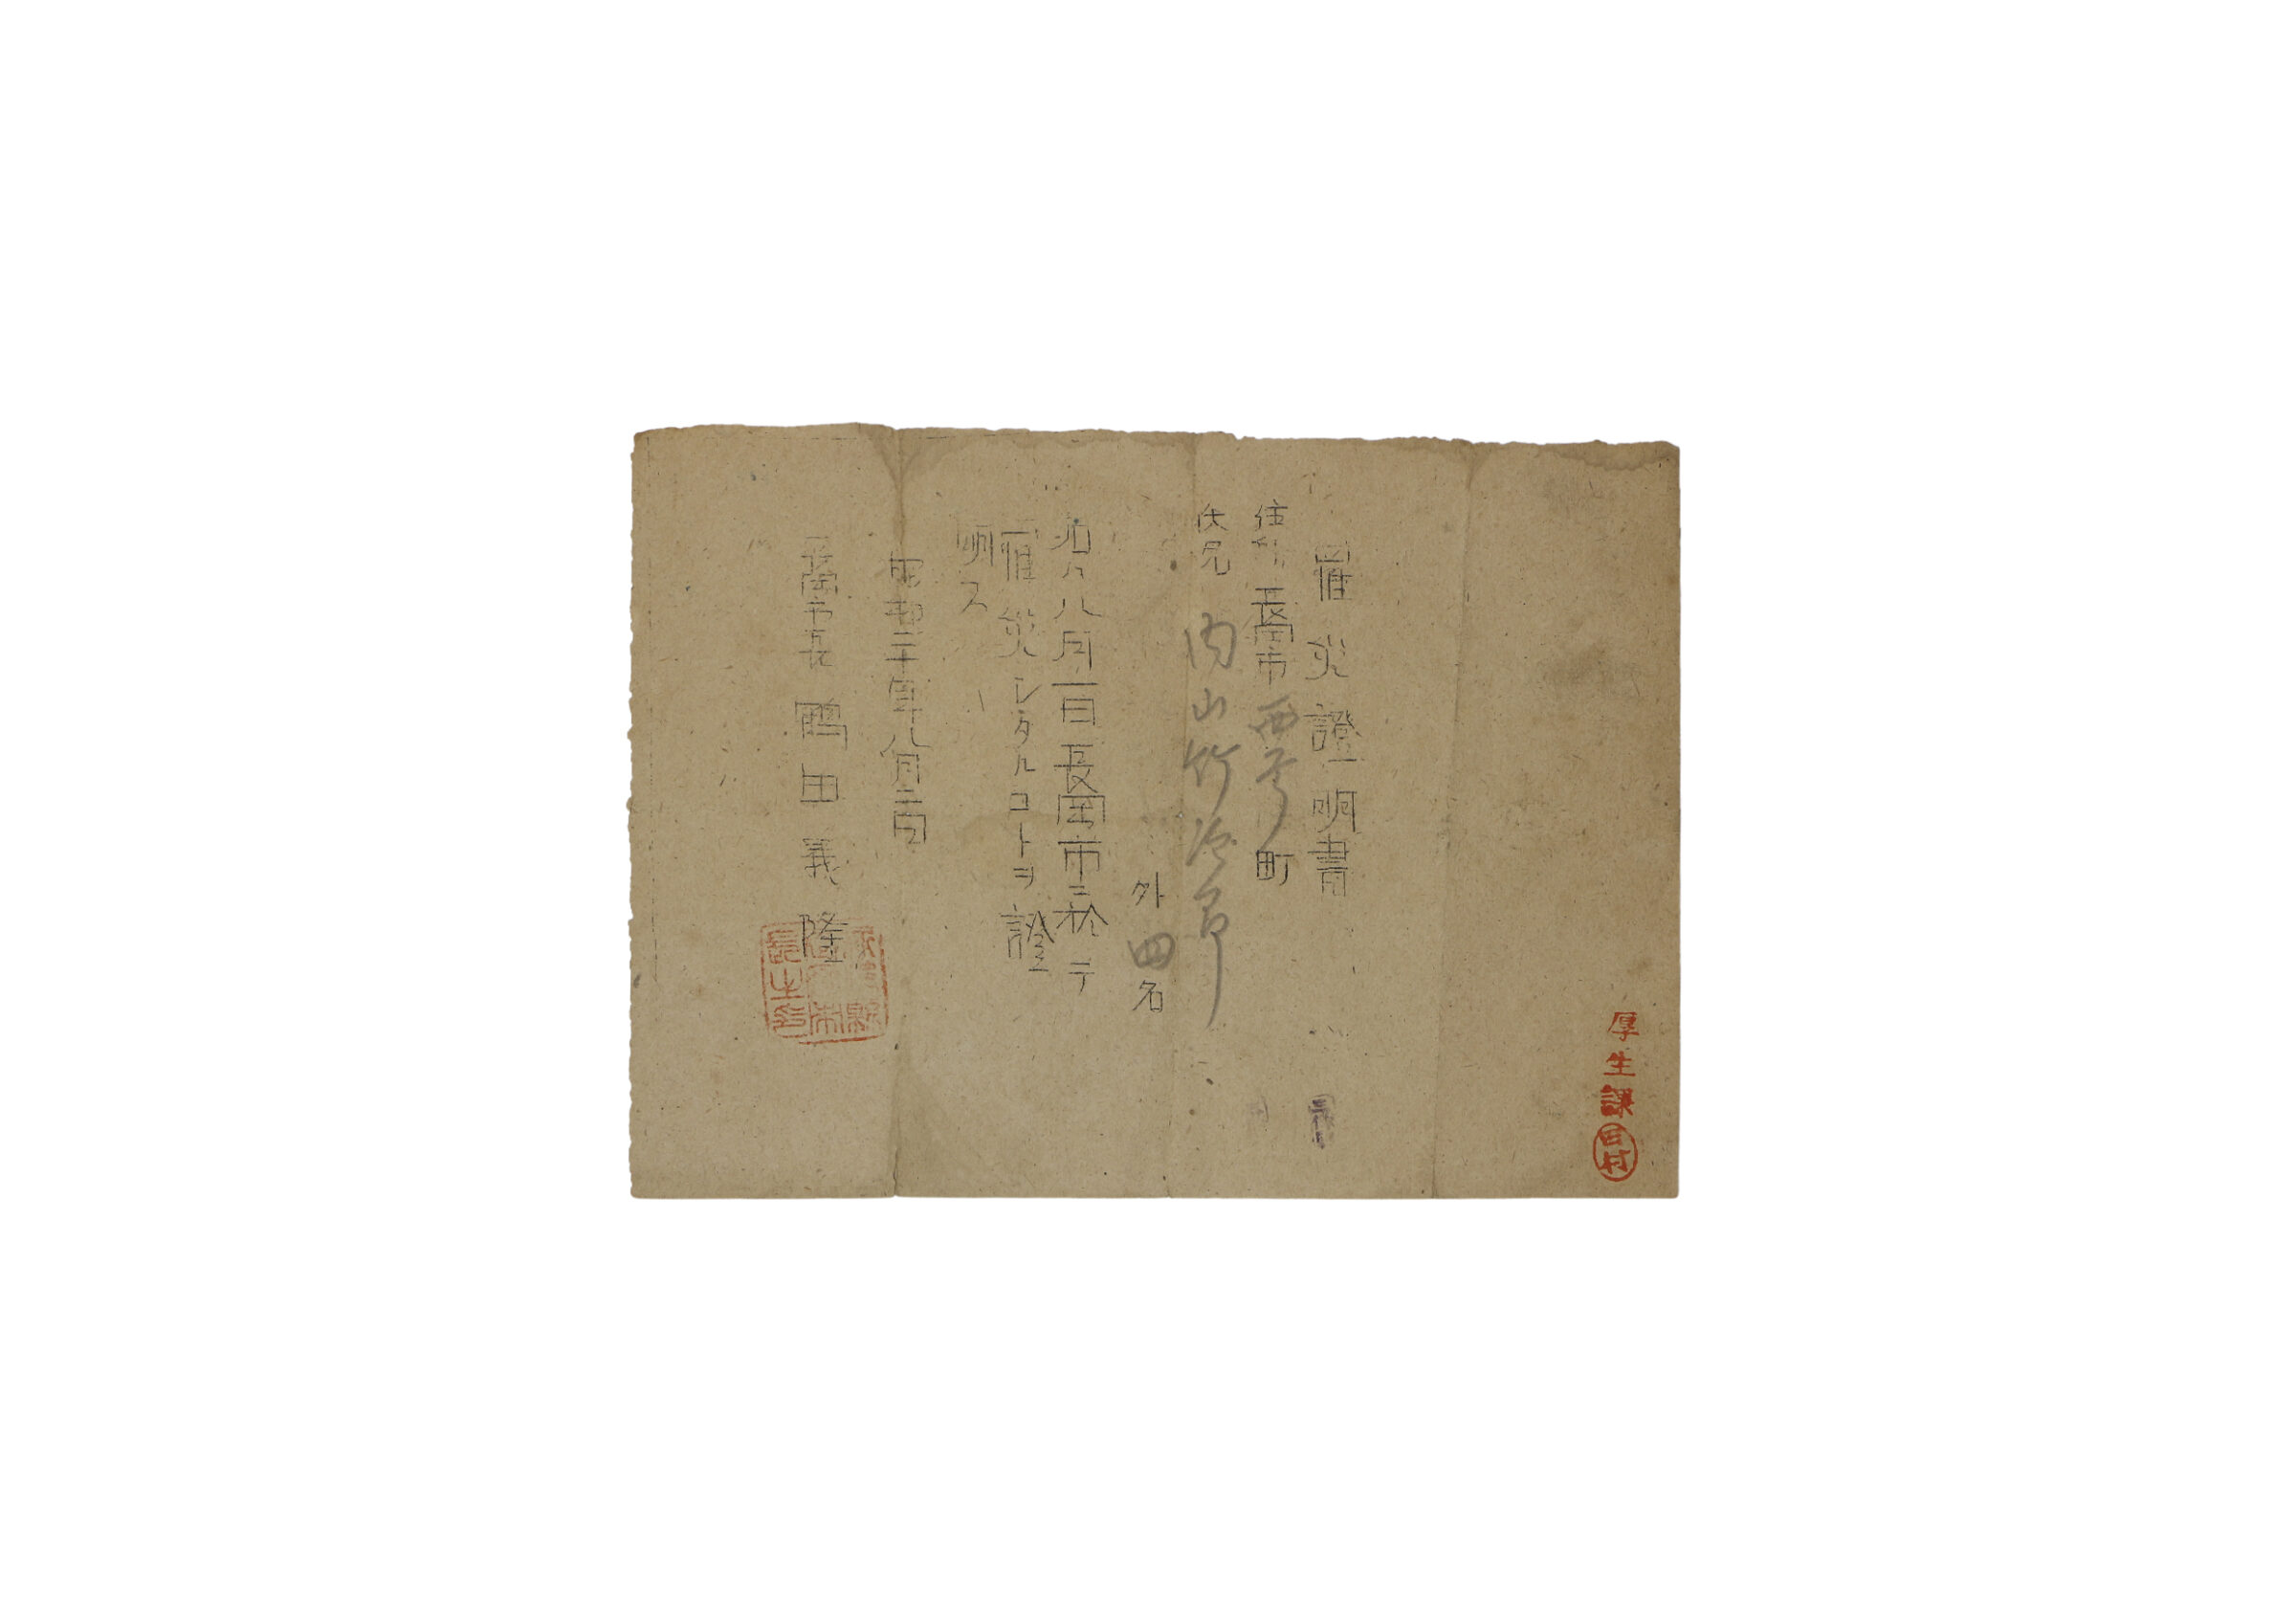 罹災證明書
住所 長岡市西千町
氏名 内山竹治郎
外四名
右ハ八月一日長岡市ニ於テ
罹災シタルコトヲ證
明ス
昭和二十年八月二日
長岡市長 鶴田義隆
厚生課
田村